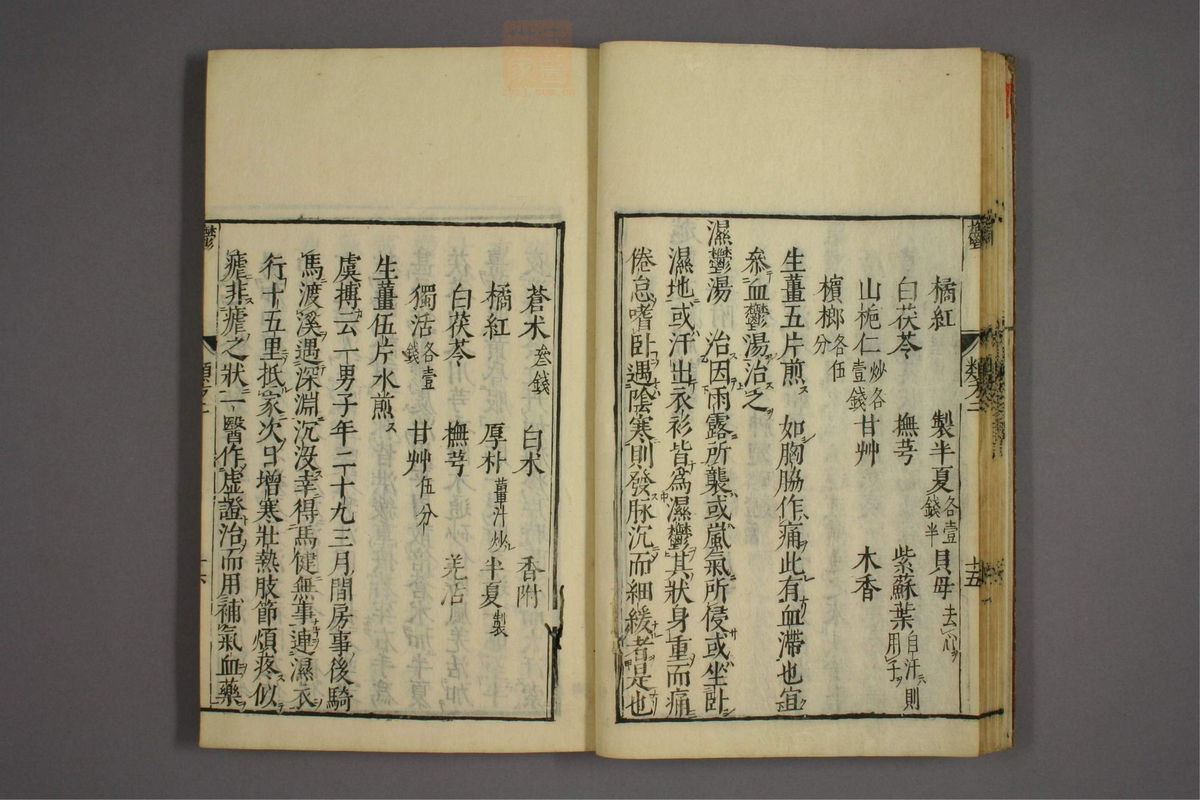 橘紅　製半夏各壹錢半　貝母去心
白茯苓　撫芎　紫蘇葉自汗則用子
山梔仁炒各壹錢　甘艸　木香
檳榔各伍分
生薑五片煎　如胸脇作痛此有血滯也宜
參血鬱湯治之
濕鬱湯　治因雨露所襲或嵐氣所侵或坐臥
濕地或汗出衣衫皆爲濕鬱其狀身重而痛
倦怠嗜臥遇陰寒則發脉沉而細緩者是也
十五
蒼朮叄錢　白朮　香附
橘紅　厚朴薑汁炒　半夏製
白茯苓　撫芎　羌活
獨活各壹錢　甘艸伍分
生薑伍片水煎
虞摶云一男子年二十九三月間房事後騎
馬渡溪遇深淵沉沒幸得馬健無事連濕衣
行十五里抵家次日增寒壯熱肢節煩疼似
瘧非瘧之狀一醫作虛證治而用補氣血藥